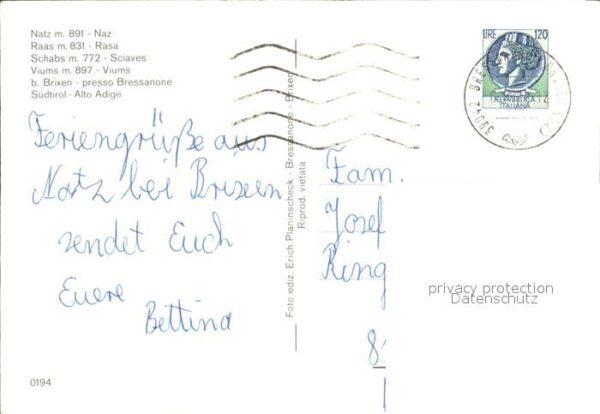 Natz m. 891 - Naz
Raas m. 831 - Rasa
Schabs m. 772 - Sciaves
Viums m. 897 - Viums
b. Brixen - presso Bressanone
Südtirol - Alto Adige
LIRE 120
REPUBBLICA
ITALIANA
39042
Feriengrüße aus
Natz bei Brixen
sendet Euch
Euere
Bettina
Foto ediz. Erich Planinscheck - Bressanone - Brixen
Riprod. vietata
Fam.
Josef
Ring
8
privacy protection
Datenschutz
0194